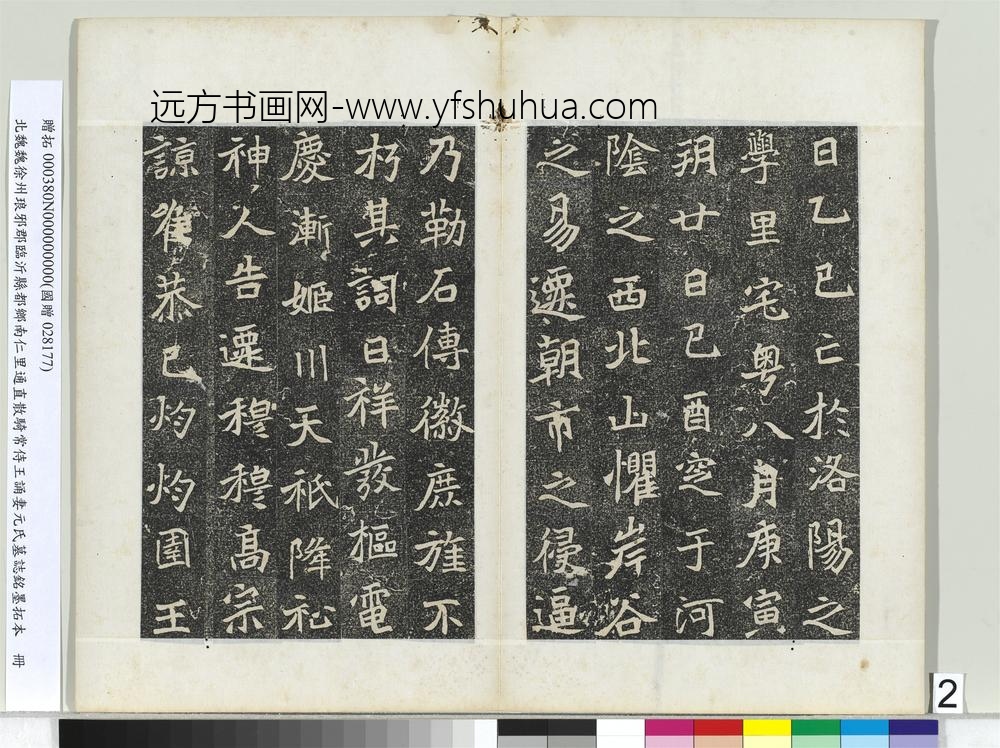 远方书画网-www.yfshuhua.com
日乙巳亡於洛陽之
學里宅粵八月庚寅
朔廿日己酉窆于河
陰之西北山懼岸谷
之易遷朝市之侵逼
乃勒石傳徽庶旌不
朽其詞曰祥發樞電
慶漸姬川天祇降祉
神人告遷穆穆高宗
諒唯恭己灼灼園王
贈拓 000380N000000000(國贈 028177)
北魏魏徐州琅邪郡臨沂縣都鄉南仁里通直散騎常侍王誦妻元氏墓誌銘墨拓本 冊
2